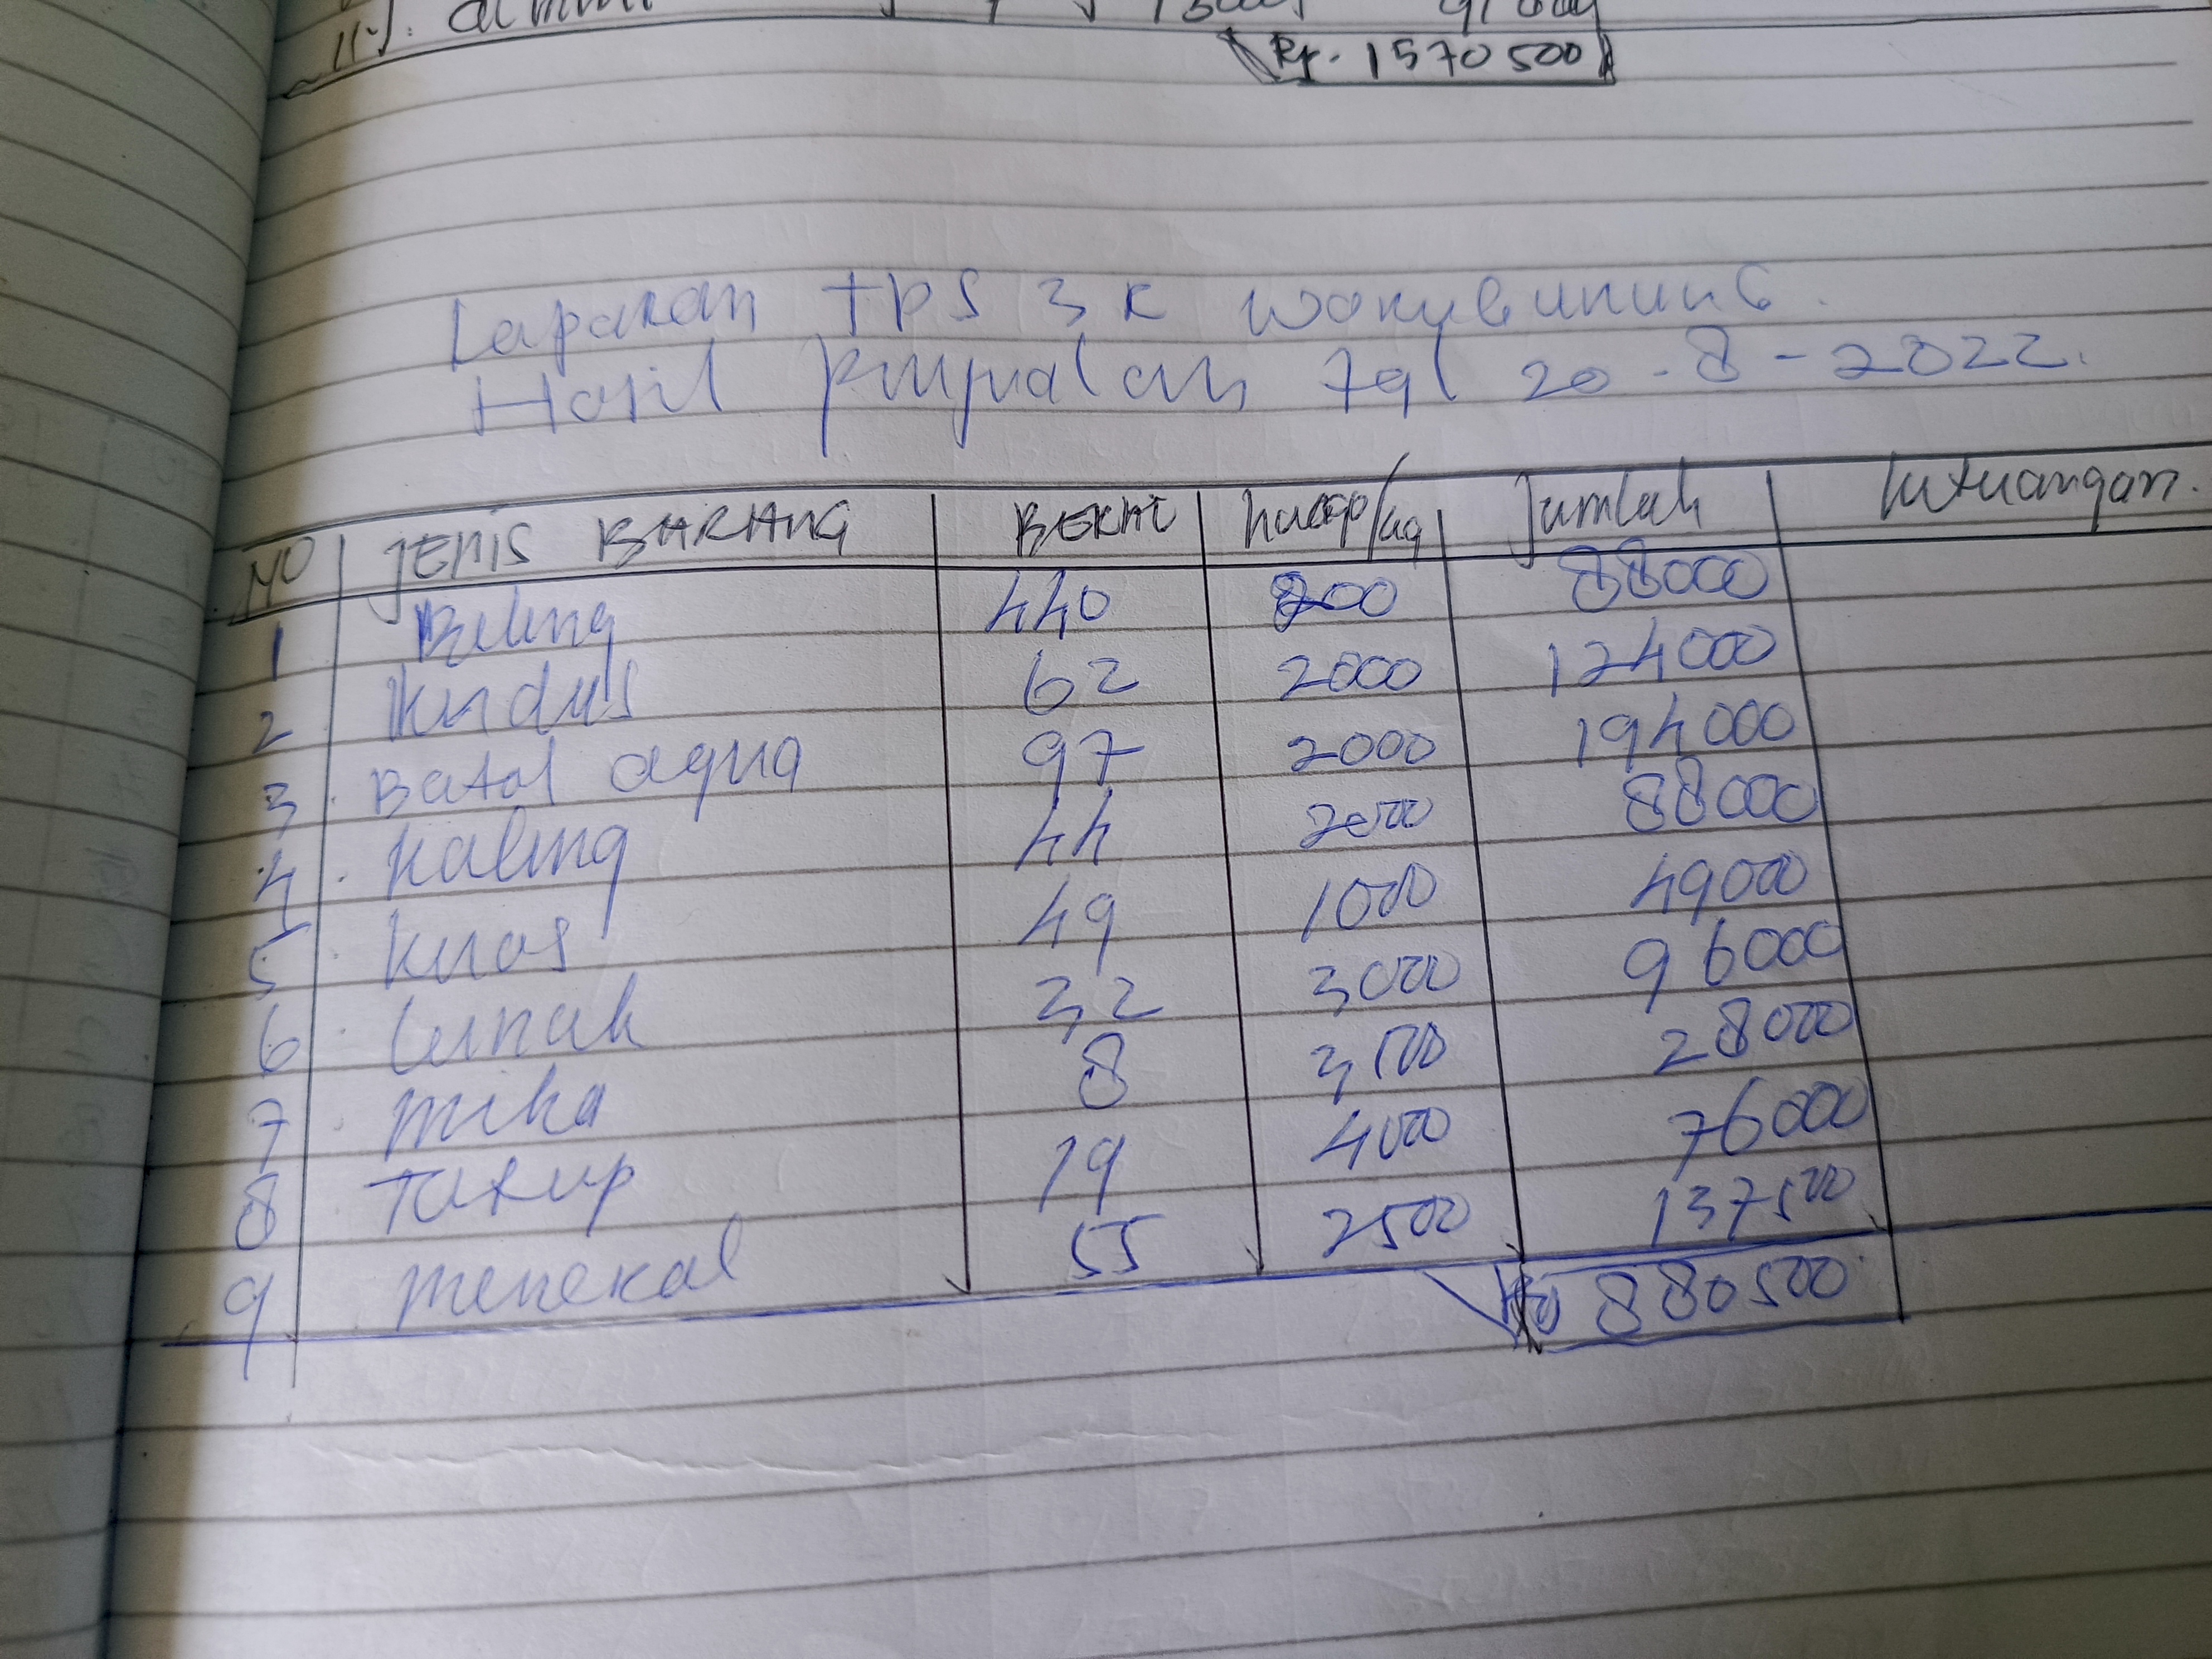 11). alumini
Rp. 1570500
Laporan TPS 3R Warubunung.
Hasil penjualan Tgl 20-8-2022.
NO JENIS BARANG BERAT harga/kg Jumlah keterangan.
1 Beling 440 200 88000
2 Kerdus 62 2000 124000
3. Batol aqua 97 2000 194000
4. Kaleng 44 2000 88000
5. Keras 49 1000 49000
6. Lemah 32 3000 96000
7. Mika 8 3500 28000
8 Tutup 19 4000 76000
9 Menekal 55 2500 137500
Rp 880500